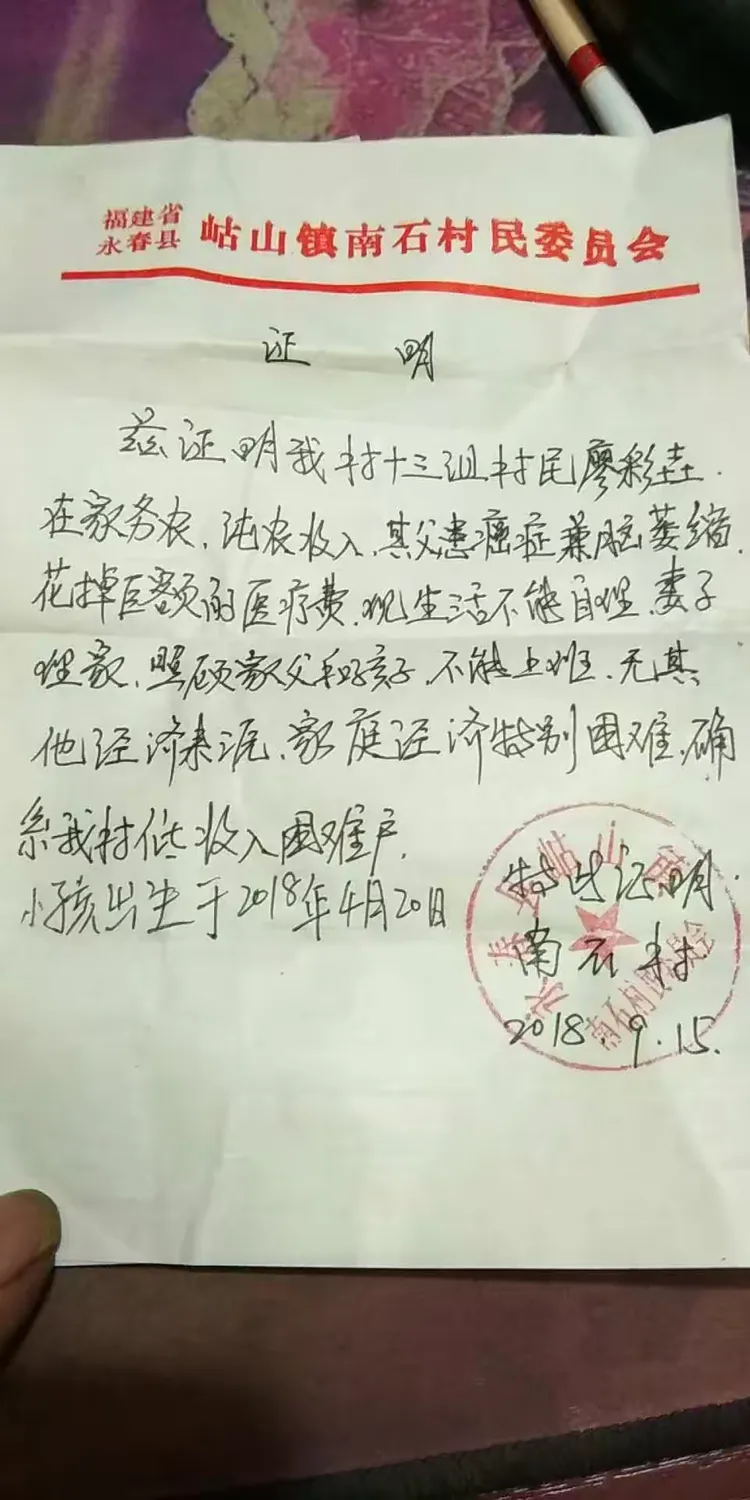 福建省
永春县
岵山镇南石村民委员会
证 明
兹证明我村十三组村民廖彩
在家务农,纯农收入,其父患癌症兼脑萎缩,
花掉巨额的医疗费,现生活不能自理,妻子
理家,照顾家父和孩子,不能上班,无其
他经济来源,家庭经济特别困难,确
系我村低收入困难户,
特此证明.
小孩出生于2018年4月20日
南石村
2018.9.15.
永春县岵山镇
南石村民委员会